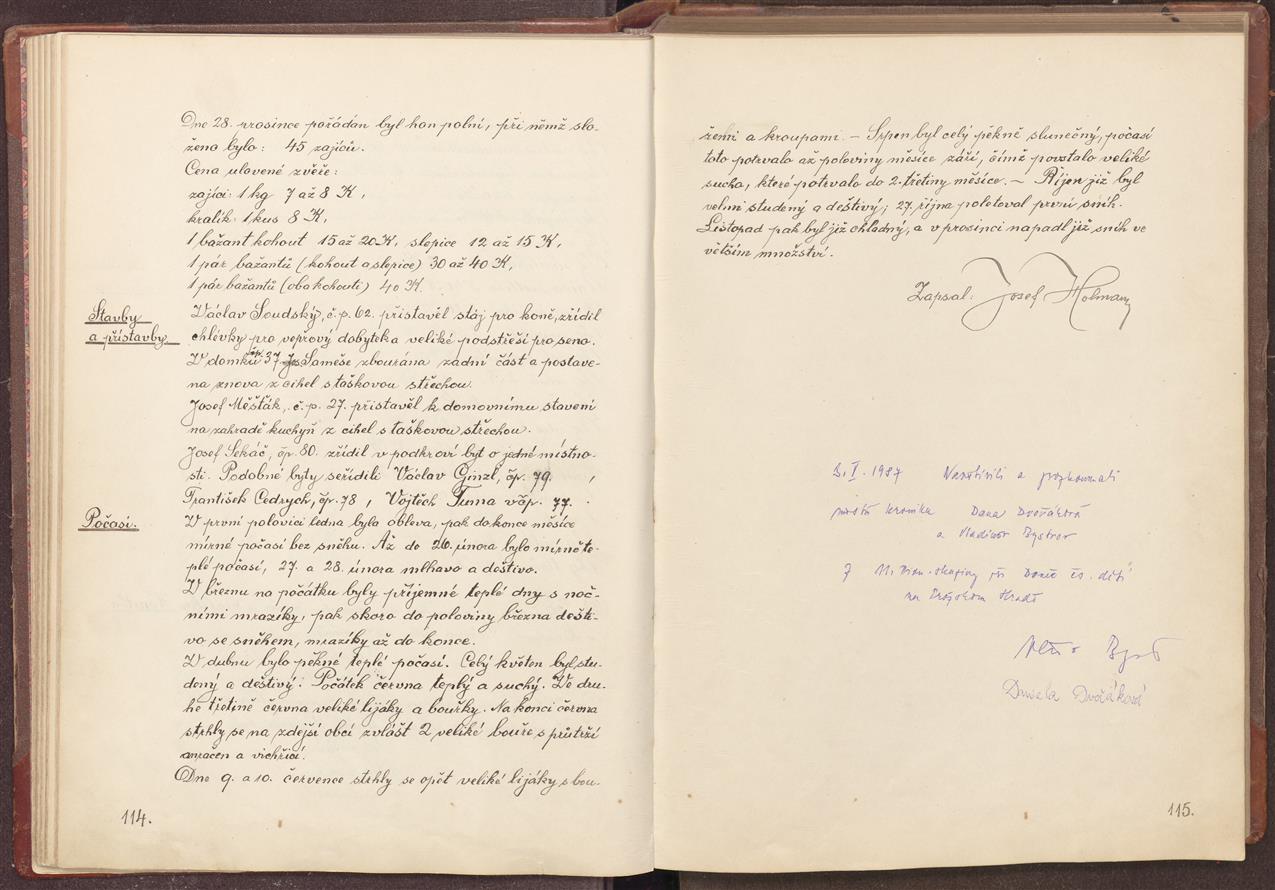 Dne 28. prosince pořádán byl hon polní, při němž slo-
ženo bylo: 45 zajíců.
Cena ulovené zvěře:
zajíci: 1 kg 7 až 8 K,
králík: 1 kus 8 K,
1 bažant kohout 15 až 20 K, slepice 12 až 15 K,
1 pár bažantů (kohout a slepice) 30 až 40 K,
1 pár bažantů (oba kohouti) 40 K.
Stavby
a přístavby
Václav Soudský, č.p. 62. přistavěl stáj pro koně, zřídil
chlévky pro vepřový dobytek a veliké podstřeší pro seno.
V domku čp. 37 Sameše zbourána zadní část a postave-
na znova z cihel s taškovou střechou.
Josef Měšťák, č.p. 27. přistavěl k domovnímu stavení
na zahradě kuchyň z cihel s taškovou střechou.
Josef Sekáč, čp. 80. zřídil v podkroví byt o jedné místno-
sti. Podobné byty seřídili Václav Ginzl, čp. 79. ,
František Cedrych, čp. 78 , Vojtěch Tuma v čp. 77.
Počasí.
V první polovici ledna byla obleva, pak do konce měsíce
mírné počasí bez sněhu. Až do 26. února bylo mírně te-
plé počasí, 27. a 28. února mlhavo a deštivo.
V březnu na počátku byly příjemné teplé dny s noč-
ními mrazíky, pak skoro do poloviny března dešti-
vo se sněhem, mrazíky až do konce.
V dubnu bylo pěkné teplé počasí. Celý květen byl stu-
dený a deštivý. Počátek června teplý a suchý. Ve dru-
hé třetině června veliké lijáky a bouřky. Na konci června
strhly se na zdejší obcí zvlášť 2 veliké bouře s průtrží
mračen a vichřicí.
Dne 9. a 10. července strhly se opět veliké lijáky s bou-
114.
řemi a kroupami. – Srpen byl celý pěkně slunečný, počasí
toto potrvalo až poloviny měsíce září, čímž povstalo veliké
sucho, které potrvalo do 2. třetiny měsíce. – Říjen již byl
velmi studený a deštivý; 27. října poletoval první sníh.
Listopad pak byl již chladný, a v prosinci napadl již sníh ve
větším množství.
Zapsal: Josef Holman
3. I. 1987 Navštívili a prozkoumali
kronika Dana Dvořáková
a Vladimír Bystrov
na Pražském Hradě
Daniela Dvořáková
115.